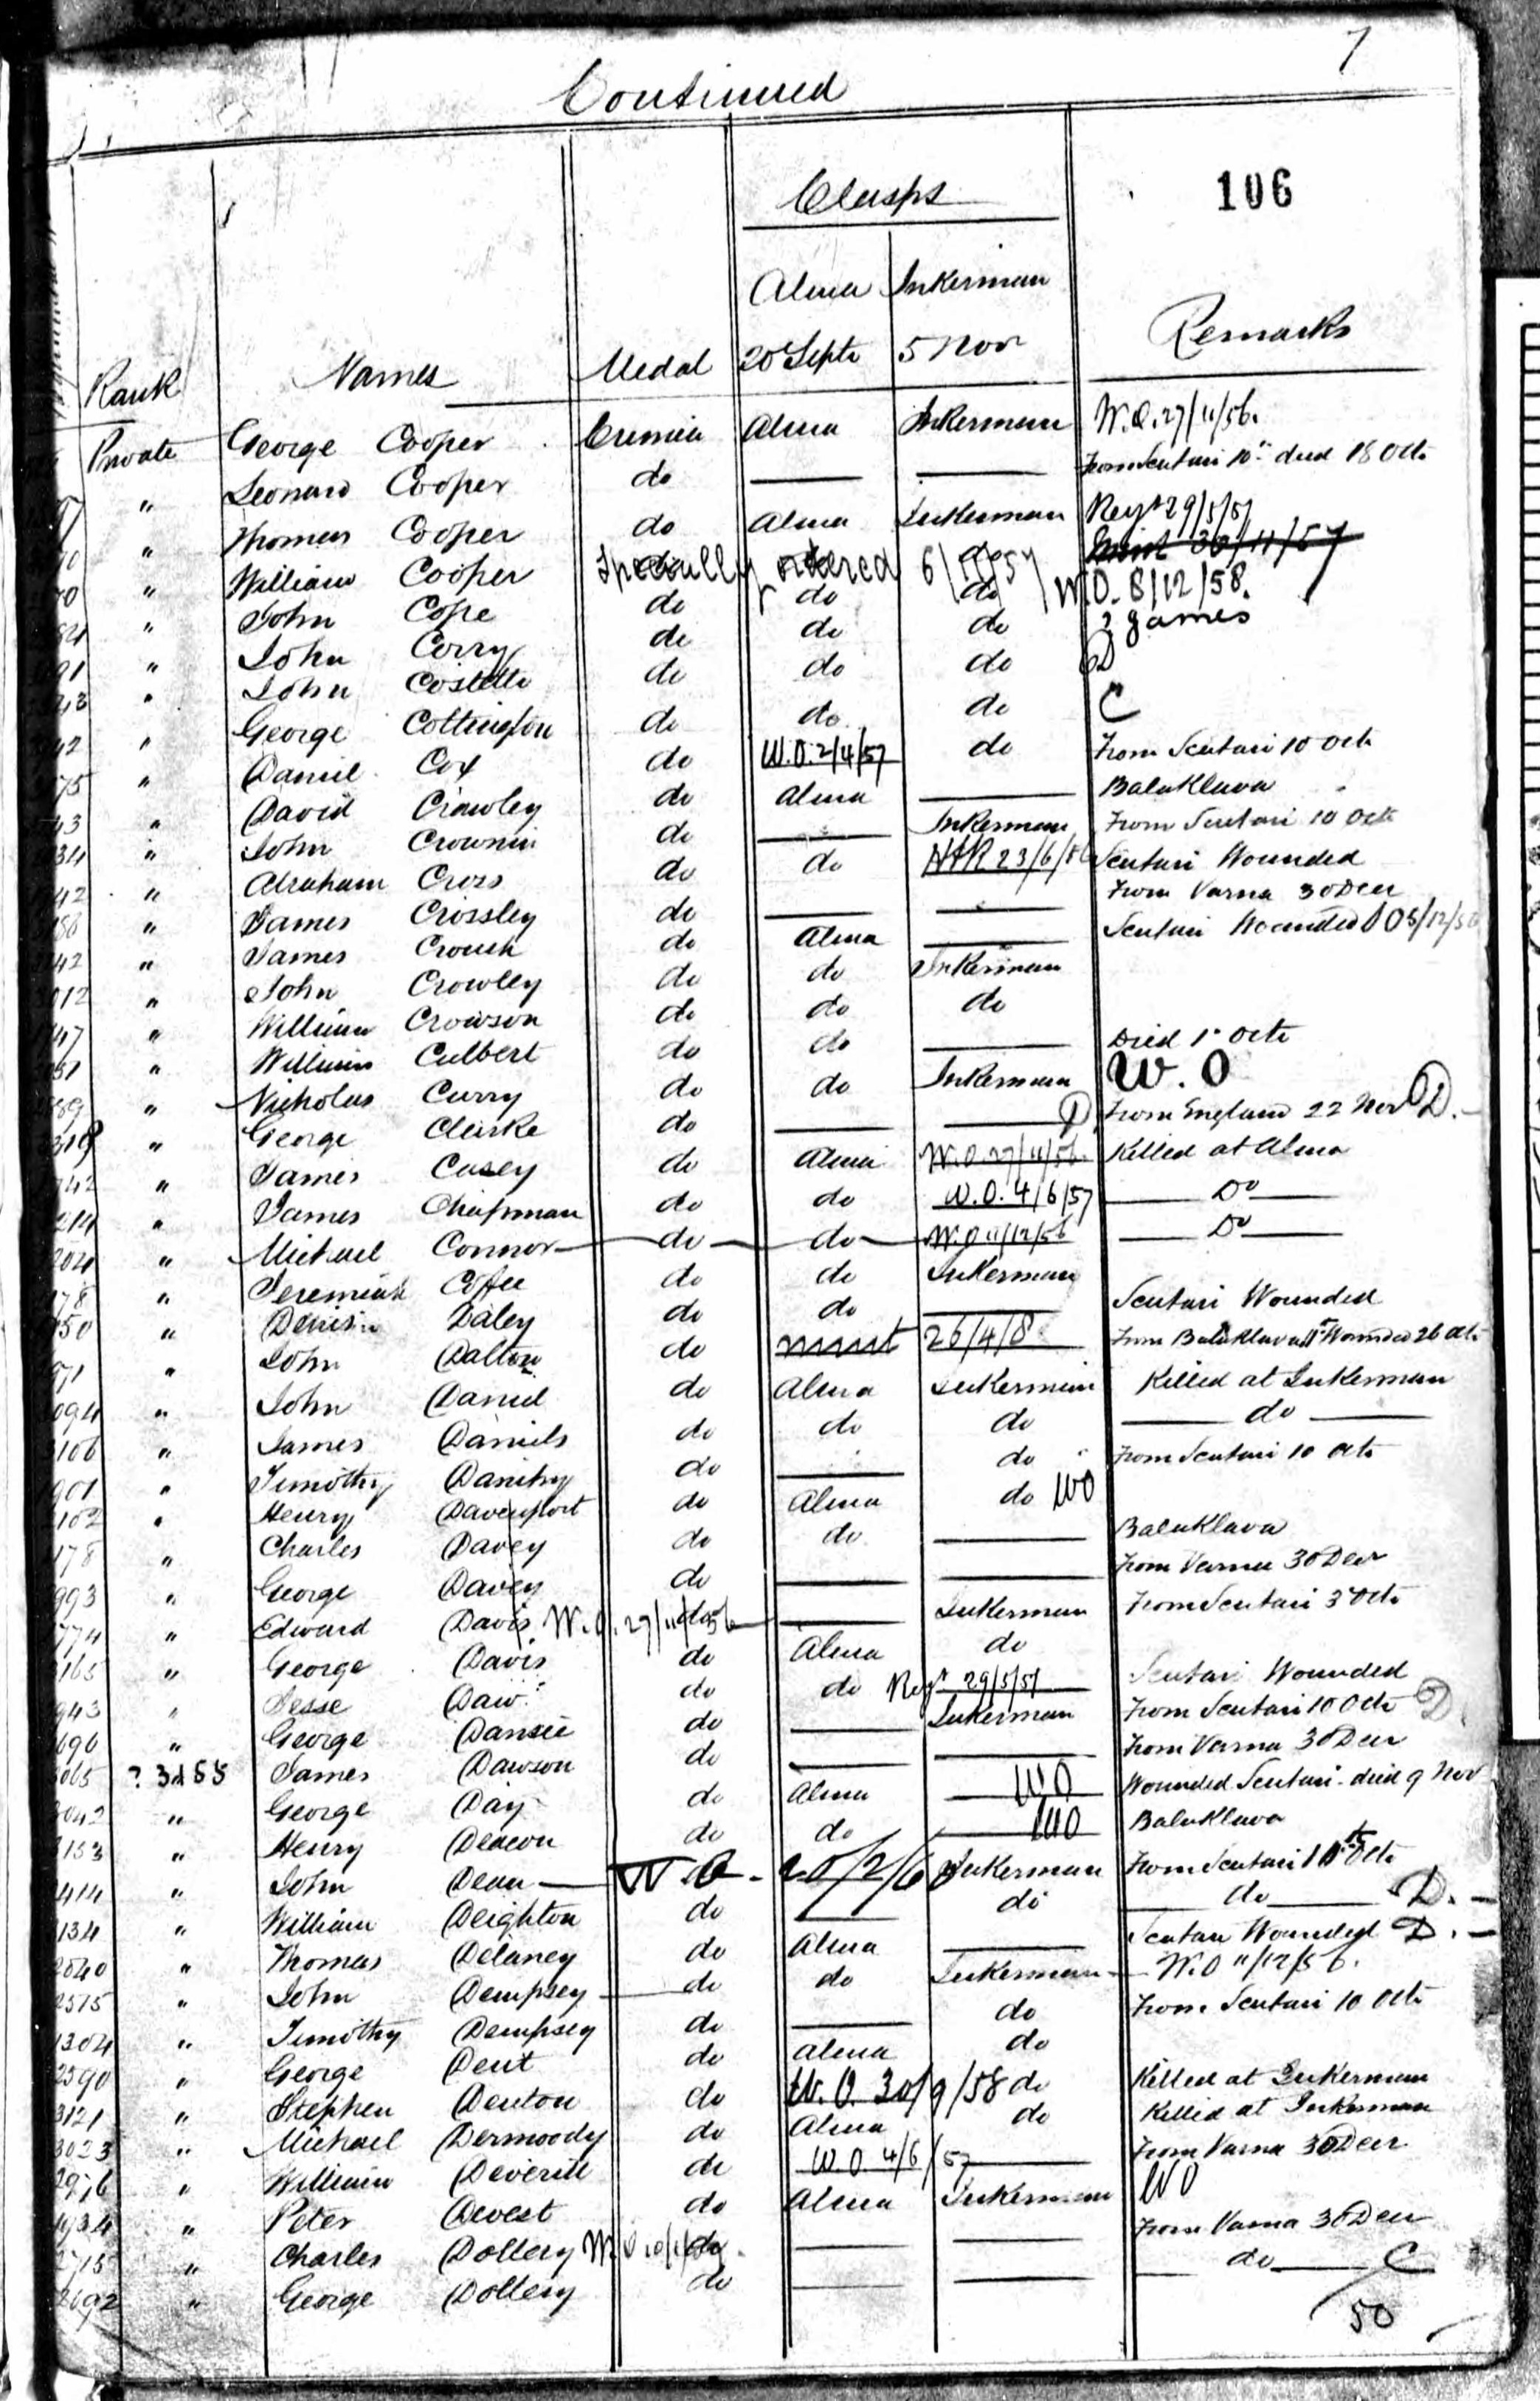 7
Continued
106
Clasps
Alma Inkerman
Rank Names Medal 20 Septr 5 Novr Remarks
Private George Cooper Crimea Alma Inkerman W.O. 27/11/56.
" Leonard Cooper do — — From Scutari 10th died 18 Octr
" Thomas Cooper do Alma Inkerman Regt 29/5/57
" William Cooper Specially ordered 6/11/57 30/11/57
" John Cope do do do W.O. 8/12/58.
" John Corry do do do ? games
" John Costello do do do
" George Cottington do do do C
42 " Daniel Cox do W.O. 2/4/57 do From Scutari 10 Octr
75 " David Crawley do Alma — Balaklava
43 " John Crownin do — Inkerman From Scutari 10 Octr
34 " Abraham Cross do do 23/6/56 Scutari Wounded
42 " James Crossley do — — From Varna 30 Decr
" James Crouch do Alma — Scutari Wounded
42 " John Crowley do do Inkerman
012 " William Crowson do do do
47 " William Culbert do do — Died 1st Octr
" Nicholas Curry do do Inkerman W.O
" George Clarke do — — D From England 22 Novr D.
" James Casey do Alma W.O. 27/11/56. Killed at Alma
214 " James Chapman do do W.O. 4/6/57 — Do —
204 " Michael Connor do do W.O 11/12/56 — Do —
78 " Jeremiah Coffee do do Inkerman
150 " Denis Daley do do — Scutari Wounded
971 " John Dalton do mint 26/4/8 From Balaklava Wounded 26 Octr
094 " John Daniel do Alma Inkerman Killed at Inkerman
3106 " James Daniels do do do — do —
901 " Timothy Danihy do — do From Scutari 10 Octr
3102 " Henry Davenport do Alma do WO
178 " Charles Davey do do — Balaklava
993 " George Davey do — — From Varna 30 Decr
774 " Edward Davis W.O. 27/11/56 do — Inkerman From Scutari 3rd Octr
3165 " George Davis do Alma do
943 " Jesse Daw do do Regt 29/5/57 Scutari Wounded
696 " George Dansie do — Inkerman From Scutari 10 Octr D.
3065 ? 3d 55 James Dawson do — — From Varna 30 Decr
3042 " George Day do Alma WO Wounded Scutari - died 9 Novr
3153 " Henry Deacon do do WO Balaklava
414 " John Dean — W.O. - 20/2/60 Inkerman From Scutari 10th Octr
134 " William Deighton do — do — do — D. -
2040 " Thomas Delaney do Alma — Scutari Wounded D. -
2575 " John Dempsey do do Inkerman W.O 11/12/56.
1304 " Timothy Dempsey do — do From Scutari 10 Octr
2390 " George Dent do Alma do
3121 " Stephen Denton do W.O. 30/9/58 do Killed at Inkerman
3023 " Michael Dermoody do Alma do Killed at Inkerman
" William Deverill do W.O 4/6/57 — From Varna 30 Decr
" Peter Devest do Alma Inkerman WO
2715 " Charles Dollery do — — From Varna 30 Decr
2692 " George Dollery do — — — do — C
50